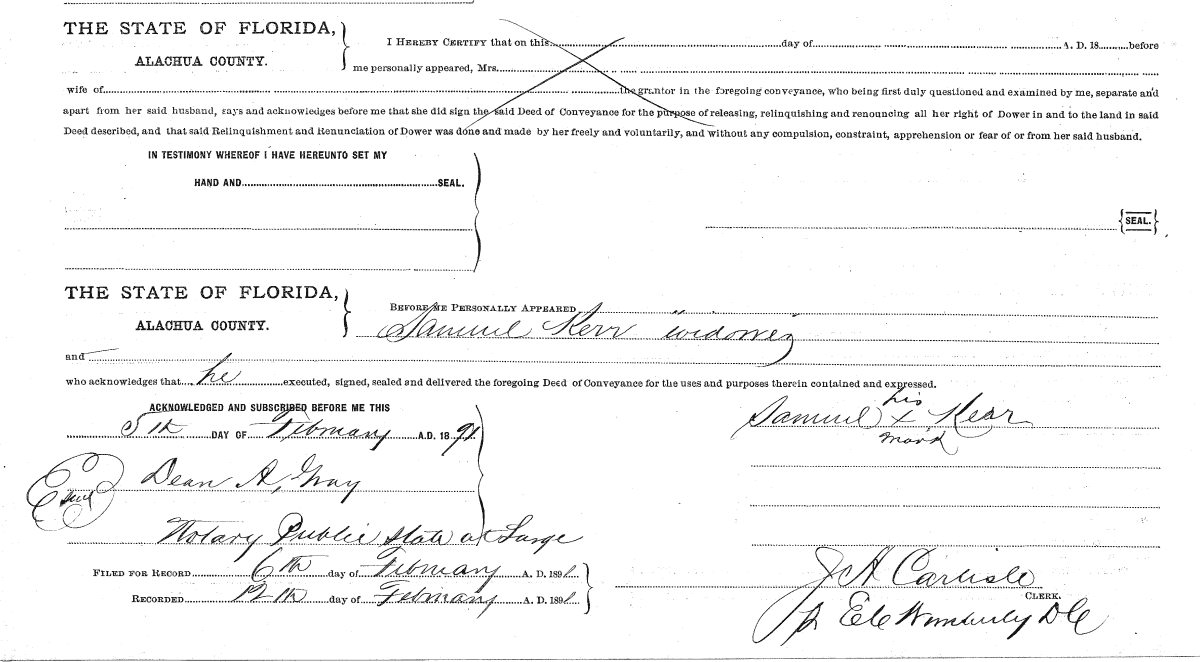 THE STATE OF FLORIDA,
ALACHUA COUNTY.
I HEREBY CERTIFY that on this day of A. D. 18 before
me personally appeared, Mrs.
wife of the grantor in the foregoing conveyance, who being first duly questioned and examined by me, separate and
apart from her said husband, says and acknowledges before me that she did sign the said Deed of Conveyance for the purpose of releasing, relinquishing and renouncing all her right of Dower in and to the land in said
Deed described, and that said Relinquishment and Renunciation of Dower was done and made by her freely and voluntarily, and without any compulsion, constraint, apprehension or fear of or from her said husband.
IN TESTIMONY WHEREOF I HAVE HEREUNTO SET MY
HAND AND SEAL.
SEAL.
THE STATE OF FLORIDA,
ALACHUA COUNTY.
BEFORE ME PERSONALLY APPEARED
Samuel Kerr
and
who acknowledges that he executed, signed, sealed and delivered the foregoing Deed of Conveyance for the uses and purposes therein contained and expressed.
ACKNOWLEDGED AND SUBSCRIBED BEFORE ME THIS
5th DAY OF February A.D. 1891
his
Samuel x Kear
mark
Seal
Dean A, Gray
Notary Public State at Large
FILED FOR RECORD 6th day of February A. D. 1891
RECORDED 12th day of February A. D. 1891
J A Carlisle
CLERK.
Wimberly DC